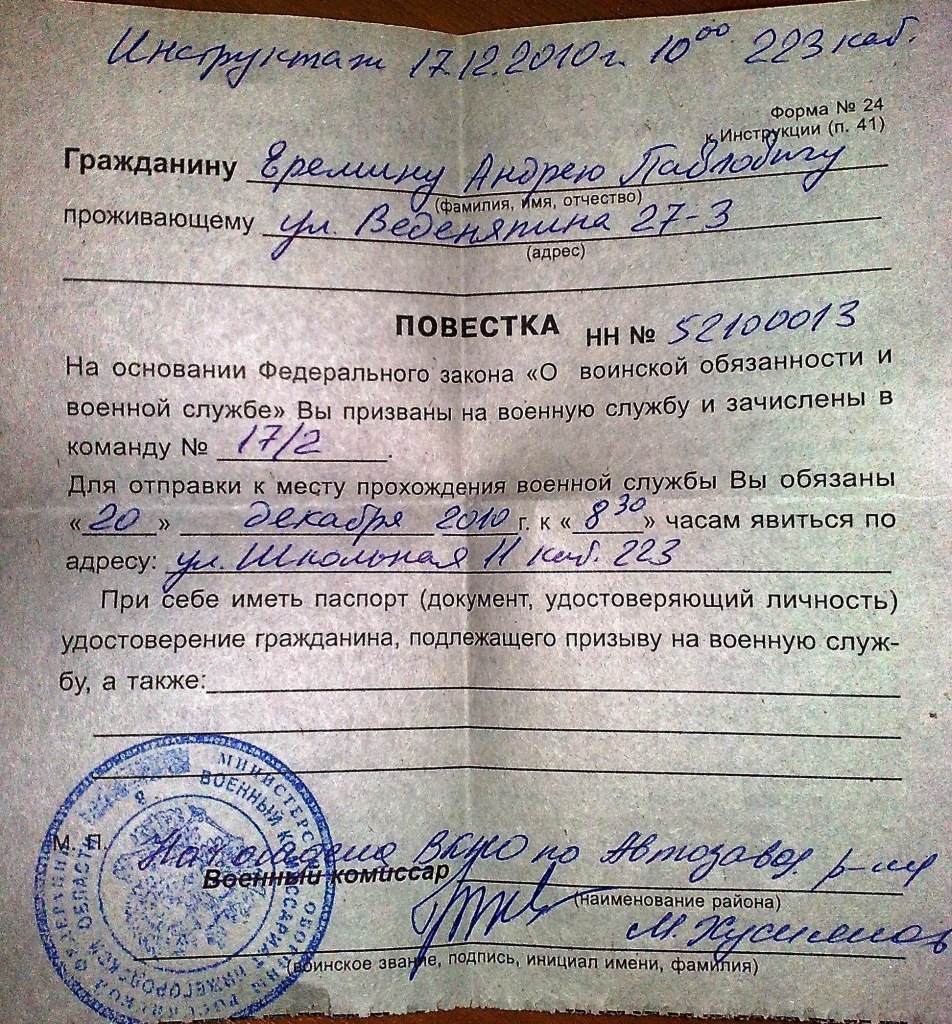 Инструктаж 17.12.2010г. 10⁰⁰ 223 каб.
Форма № 24
к Инструкции (п. 41)
Гражданину Еремину Андрею Павловичу
(фамилия, имя, отчество)
проживающему ул. Веденяпина 27-3
(адрес)
ПОВЕСТКА НН № 52100013
На основании Федерального закона «О воинской обязанности и
военной службе» Вы призваны на военную службу и зачислены в
команду № 17/2.
Для отправки к месту прохождения военной службы Вы обязаны
«20» декабря 2010 г. к «8³⁰» часам явиться по
адресу: ул. Школьная 11 каб. 223
При себе иметь паспорт (документ, удостоверяющий личность)
удостоверение гражданина, подлежащего призыву на военную служ-
бу, а также:
М. П.
Нач отдела ВКНО по Автозавод. р-ну
Военный комиссар
(наименование района)
(воинское звание, подпись, инициал имени, фамилия)
ВОЕННЫЙ КОМИССАРИАТ НИЖЕГОРОДСКОЙ ОБЛАСТИ